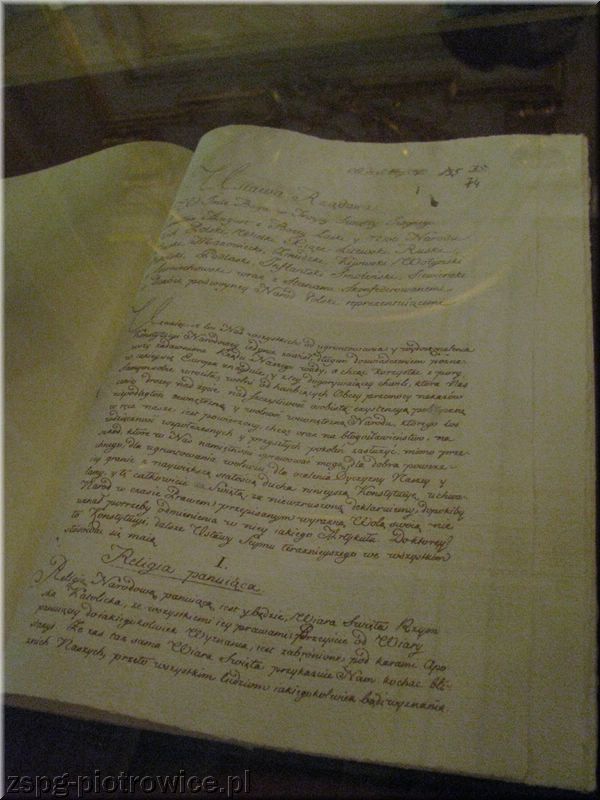 195 35
74
Ustawa Rządowa
W Imie Boga w Troycy Swiętey Jedynego
August z Bozey Łaski y Woli Narodu
Polski, Wielki Xiąze Litewski, Ruski
Mazowiecki, Zmudzki, Kijowski, Wołynski
Podlaski, Inflantski, Smolenski, Siewierski
Czerniechowski, wraz z Stanami Skonfederowanemi
podwoyney Naród Polski reprezentuiącemi
Uznaiąc, iż los Nas wszystkich od ugruntowania y wydoskonalenia
Konstytucyi Narodowey iedynie zawisł, długim doswiadczeniem pozna-
wszy zadawnione Rządu Naszego wady, a chcąc korzystac z pory
w iakiey się Europa znayduie, y z tey dogorywaiącey chwili, która Nas
Samym sobie wrociła, wolni od hanbiących Obcey przemocy nakazów
ceniąc drozey nad zycie, nad szczęsliwosc osobistą exystencyą polityczną
niepodległosc zewnętrzną y wolnosc wewnętrzną Narodu, ktorego los
w ręce nasze iest powierzony, chcąc oraz na błogosławienstwo, na
wdzięcznosc wspołczesnych y przyszłych pokolen zasłuzyc, mimo prze-
szkod, ktore w Nas namiętnosci sprawowac mogą, dla dobra powsze-
chnego, dla ugruntowania wolnosci, dla ocalenia Oyczyzny Naszey y
iey granic z naywiększą stałoscią ducha ninieyszą Konstytucyę uchwa-
lamy, y tę całkowicie za Swiętą, za niewzruszoną deklaruiemy, dopokiby
Naród w czasie Prawem przepisanym wyrazną Wolą swoią nie
uznał potrzeby odmienienia w niey iakiego Artykułu. Do ktorey
to Konstytucyi dalsze Ustawy Seymu teraznieyszego we wszystkim
stosowac się maią.
I.
Religia panuiąca.
Religią Narodową panuiącą iest y będzie Wiara Swięta Rzym-
ska Katolicka, ze wszystkiemi iey prawami; Przeyscie od Wiary
panuiącey do iakiegokolwiek Wyznania, iest zabronione pod karami Apo-
stazyi. Ze zas taz sama Wiara Swięta przykazuie Nam kochac bli-
znich Naszych, przeto wszystkim ludziom iakiegokolwiek bądz wyznania
zspg-piotrowice.pl